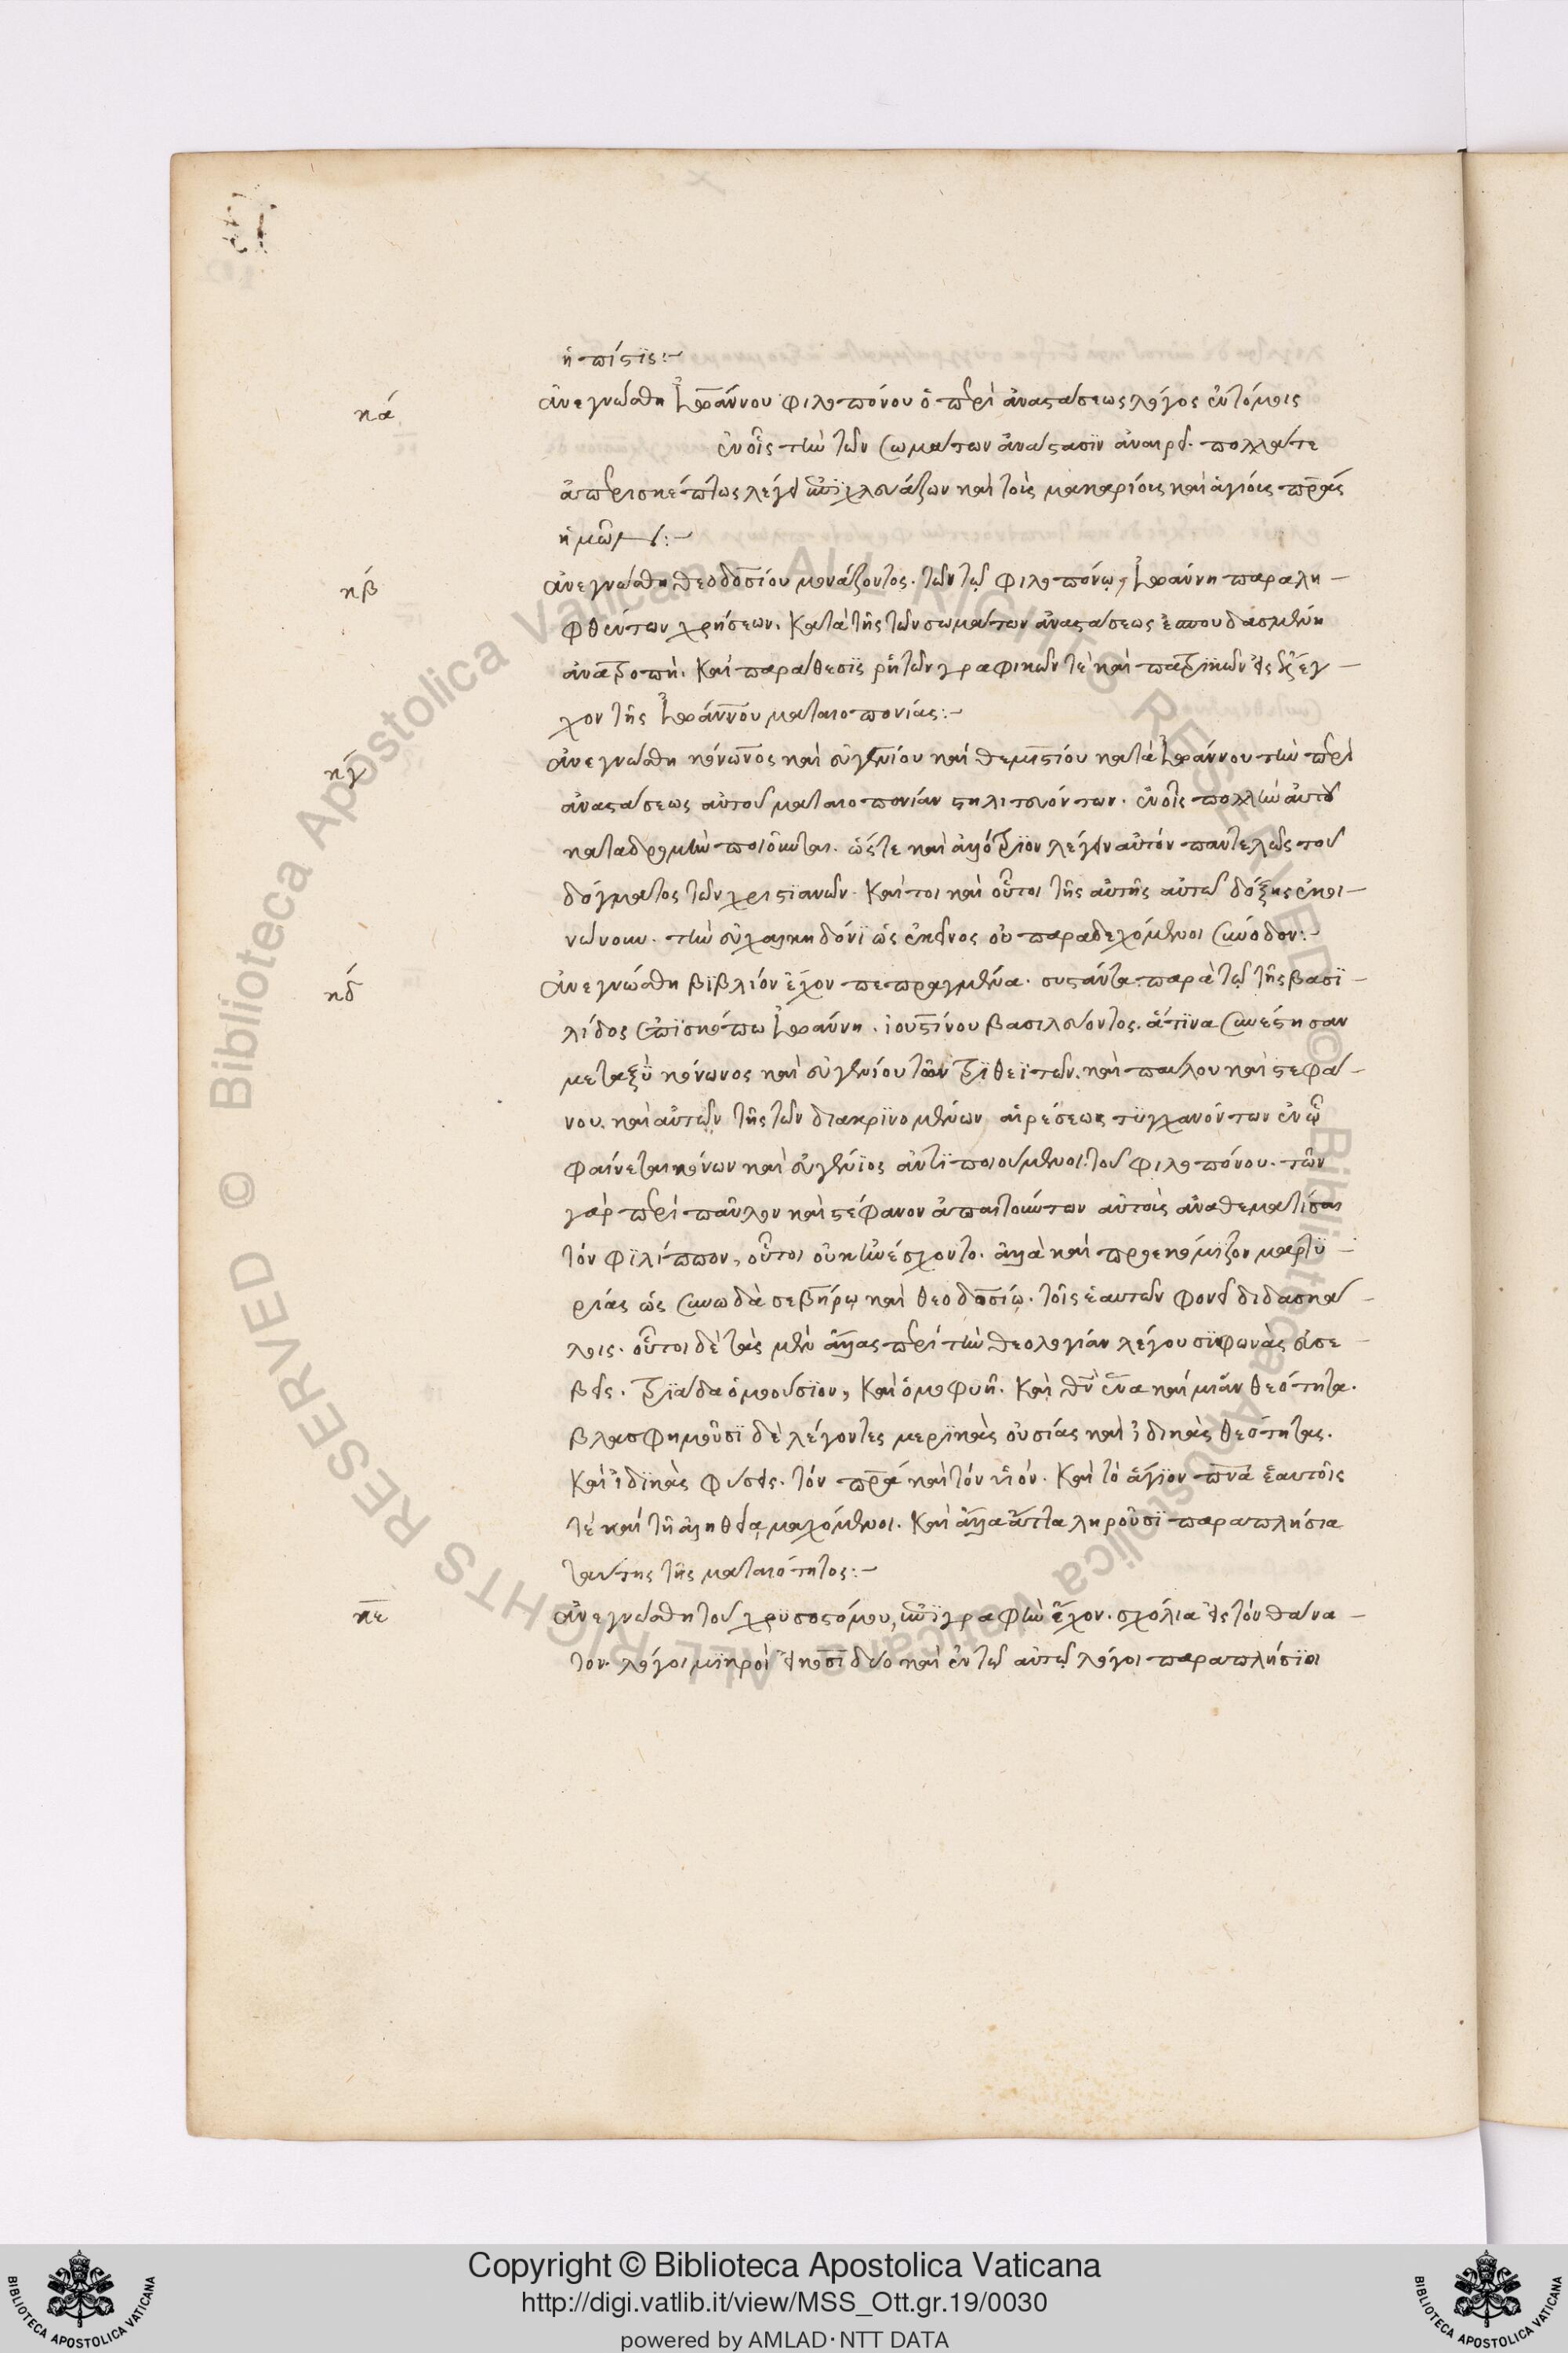 ἡ πίστις:-
κα΄
ἀνεγνώσθη Ἰωάννου φιλοπόνου ὁ περὶ ἀναστάσεως λόγος ἐν τόμοις
ἐν οἷς τὴν τῶν σωμάτων ἀνάστασιν ἀναιρεῖ. πολλά τε
ἀπερισκέπτως λέγει ἐπιχλευάζων καὶ τοὺς μακαρίους καὶ ἁγίους πρᾶς
ἡμῶν:-
κβ΄
ἀνεγνώσθη θεοδοσίου μονάζοντος. τῶν τῷ φιλοπόνῳ, Ἰωάννη παραλη-
φθέντων χρήσεων. κατὰ τῆς τῶν σωμάτων ἀναστάσεως ἐσπουδασμένη
ἀνατροπή. καὶ παράθεσις ῥητῶν γραφικῶν τὲ καὶ πατρικῶν εἰς ἔλεγ-
χον τῆς Ἰωάννου ματαιοπονίας:-
κγ΄
ἀνεγνώσθη κόνωνος καὶ εὐγενίου καὶ θεμιστίου κατὰ Ἰωάννου τὴν περὶ
ἀναστάσεως αὐτοῦ ματαιοπονίαν στηλιτευόντων. ἐν οἷς πολλὴν αὐτοῦ
καταδρομὴν ποιοῦνται. ὥστε καὶ ἀλλότριον λέγειν αὐτόν παντελῶς τοῦ
δόγματος τῶν χριστιανῶν. καίτοι καὶ οὗτοι τῆς αὐτῆς αὐτῷ δόξης ἐκοι-
νώνουν. τὴν ἐν χαλκηδόνι ὡς ἐκεῖνος οὐ παραδεχόμενοι σύνοδον:-
κδ΄
ἀνεγνώσθη βιβλίον ἔχον πεπραγμένα. συστάντα παρὰ τῷ τῆς βασι-
λίδος ἐπισκόπω Ἰωάννη. ἰουστίνου βασιλεύοντος. ἅτινα συνέστησαν
μεταξὺ κόνωνος καὶ εὐγενίου τῶν τριθεϊτῶν. καὶ παύλου καὶ στεφά-
νου. καὶ αὐτῶν τῆς τῶν διακρινομένων αἱρέσεως τυγχανόντων ἐν ᾧ
φαίνεται κόνων καὶ εὐγένιος ἀντιποιούμενοι τοῦ φιλοπόνου. τῶν
γὰρ περὶ παῦλον καὶ στέφανον ἀπαιτούντων αὐτοὺς ἀναθεματίσαι
τόν φιλόπονον, οὗτοι οὐκ ἠνέσχοντο. ἀλλὰ καὶ προεκόμιζον μαρτυ-
ρίας ὡς συνωδὰ σεβήρῳ καὶ θεοδοσίῳ. τοῖς ἑαυτῶν φονεῖ διδασκά-
λοις. οὗτοι δὲ τὰς μὲν ἄλλας περὶ τὴν θεολογίαν λέγουσι φωνὰς εὐσε-
βεῖς. τριάδα ὁμοούσιον, καὶ ὁμοφυῆ. καὶ θν ἕνα καὶ μίαν θεότητα.
βλασφημοῦσι δὲ λέγοντες μερικὰς οὐσίας καὶ ἰδικὰς θεότητας.
καὶ ἰδικὰς φύσεις. τόν πρα καὶ τόν υἱόν. καὶ τὸ ἅγιον πνα ἑαυτοῖς
τὲ καὶ τῇ ἀληθείᾳ μαχόμενοι. καὶ ἄλλα ἄττα ληροῦσι παραπλήσια
ταύτης τῆς ματαιότητος:-
κε
ἀνεγνώσθη τοῦ χρυσοστόμου, ἐπιγραφὴν ἔχον. σχόλια εἰς τὸν θάνα-
τον. λόγοι μικροὶ εἴκοσι δύο καὶ ἐν τῷ αὐτῷ λόγοι παραπλήσιοι
Copyright © Biblioteca Apostolica Vaticana
http://digi.vatlib.it/view/MSS_Ott.gr.19/0030
powered by AMLAD·NTT DATA